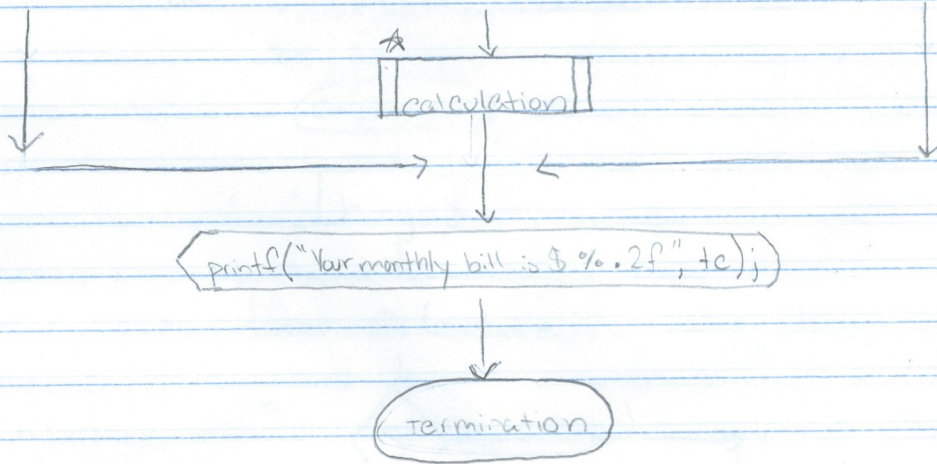 calculation
printf("Your monthly bill is $ %.2f", tc);
termination